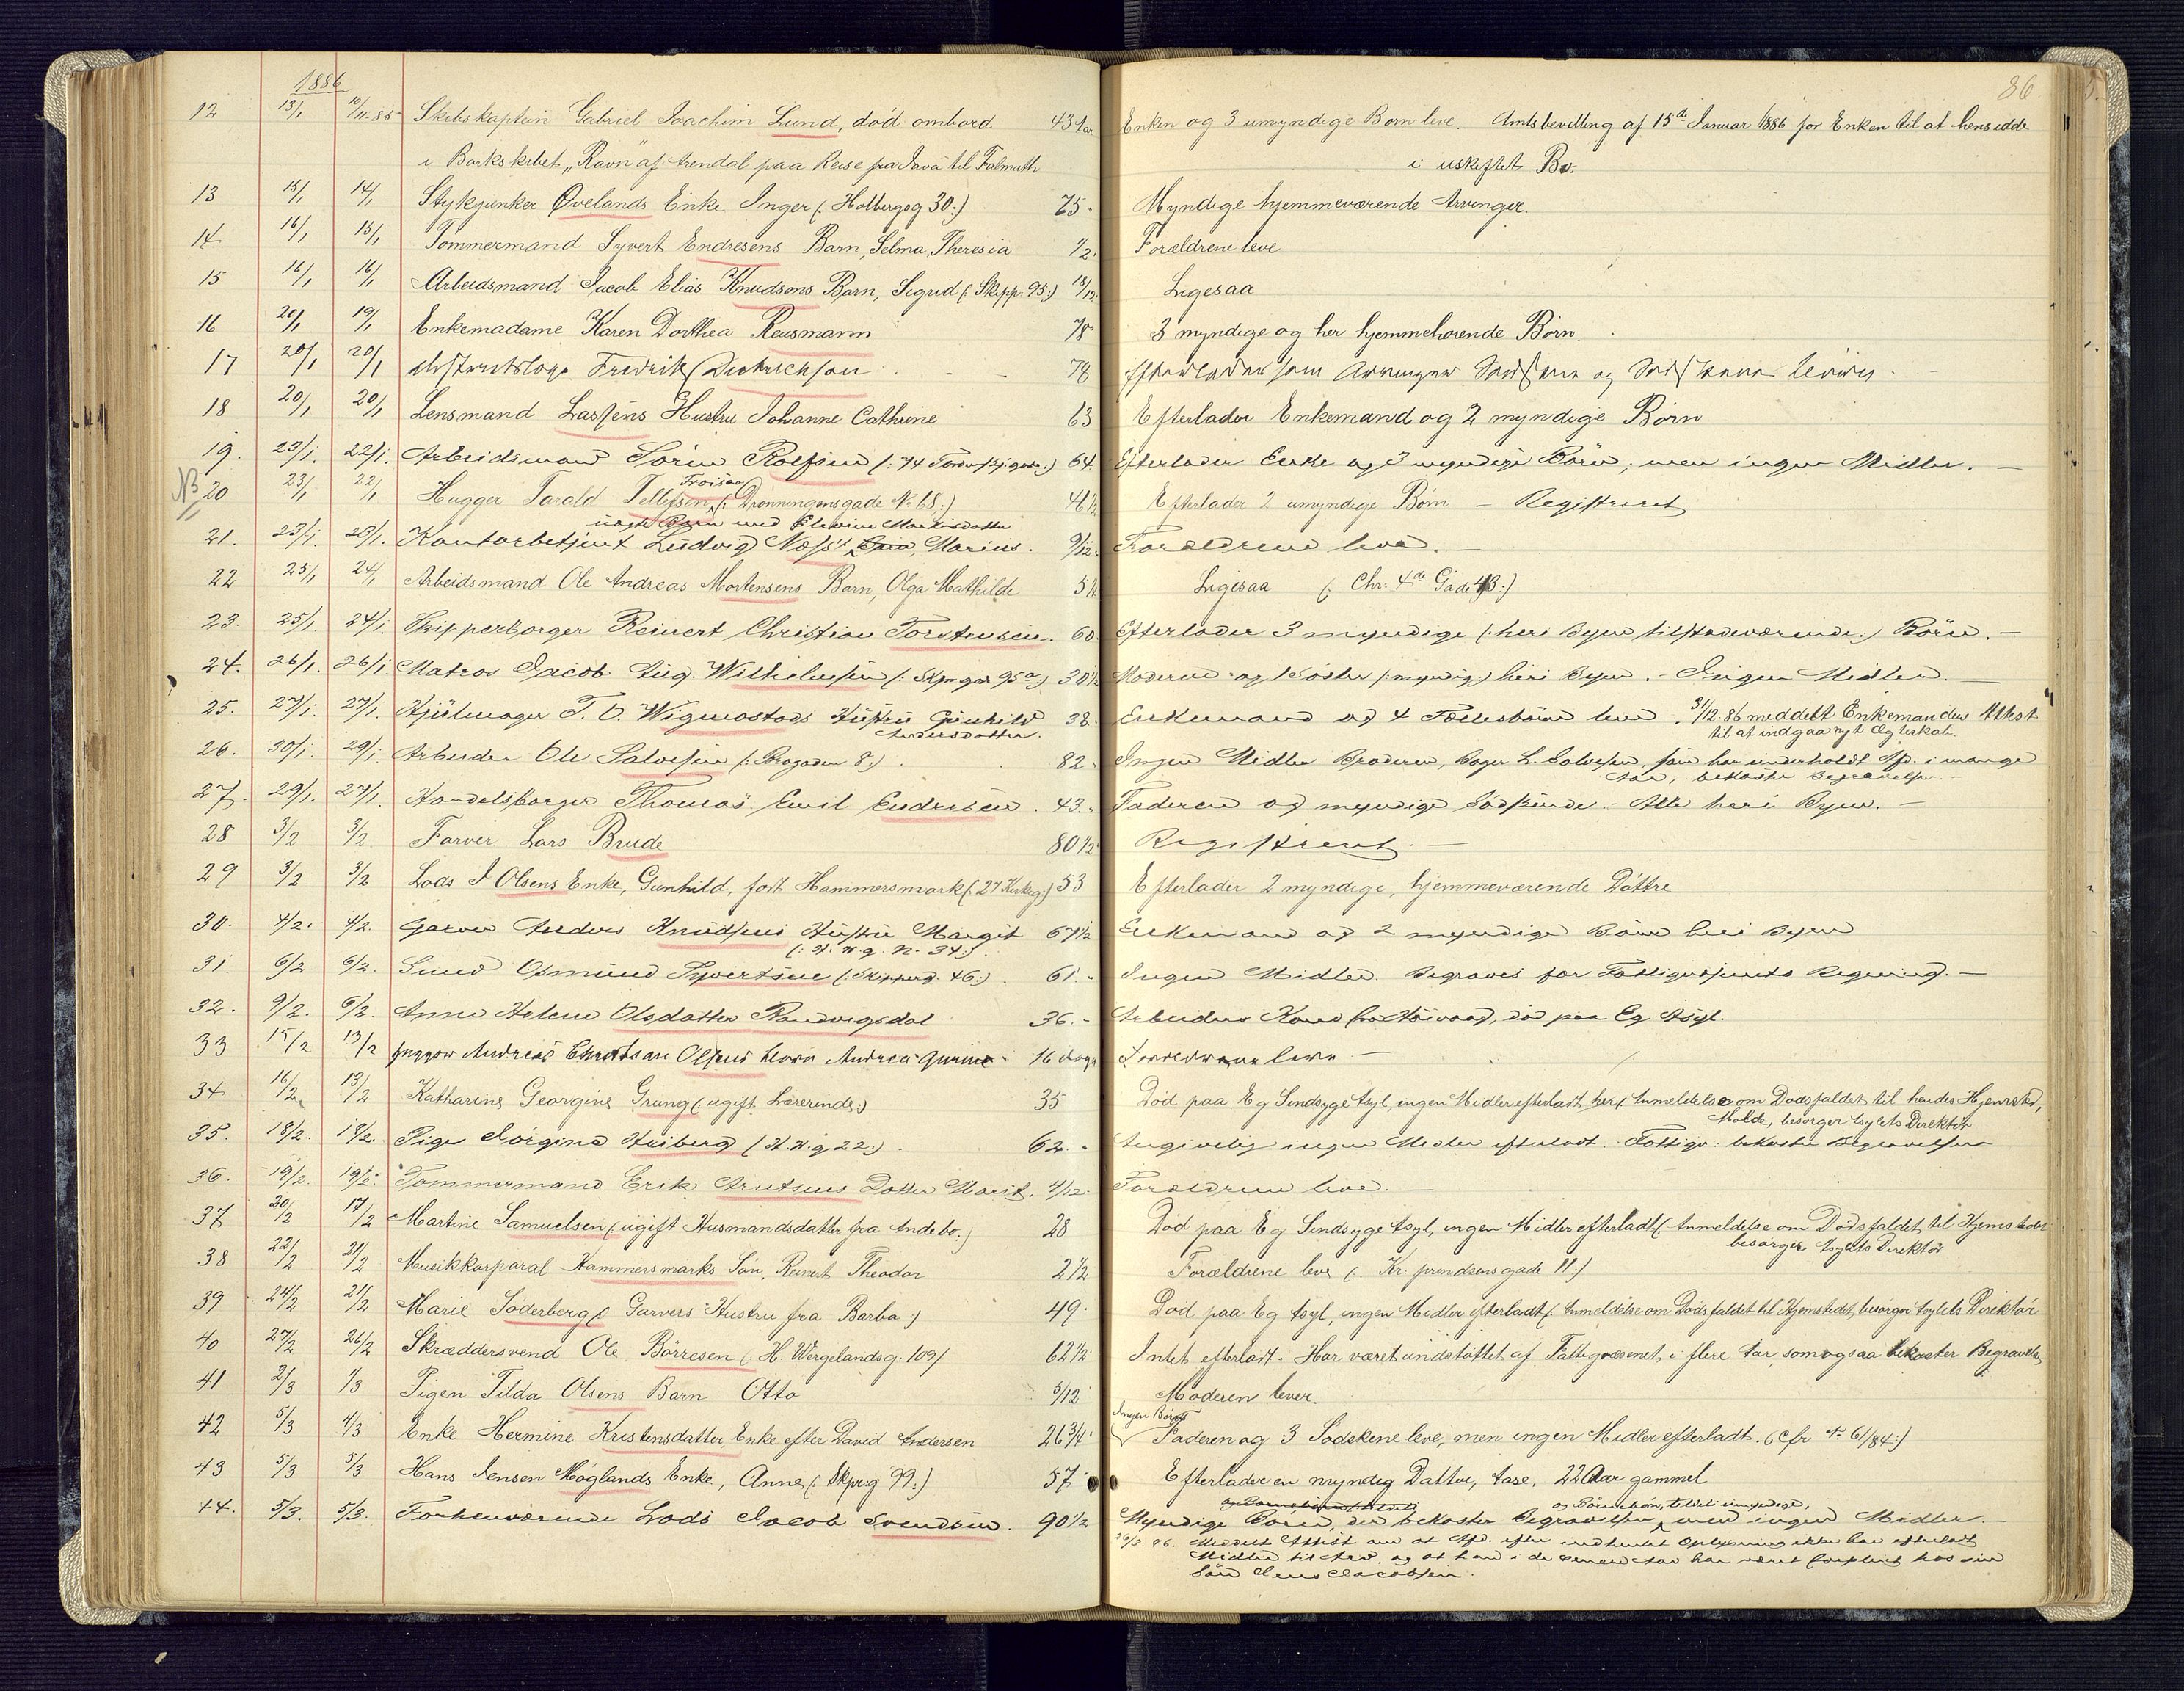 1886
86
12 13/1 10/11.85 Skibskaptein Gabriel Joachim Lund, död ombord 43 Aar Enken og 3 umyndige Børn leve. Amtsbevilling af 15de Januar 1886 for Enken til at hensidde
i Barkskibet "Ravn" af Arendal paa Reise fra Java til Falmuth i uskiftet Bo.
13 15/1 14/1 Stykjunker Øvelands Enke Inger (: Holbergsg 30:) 75 Myndige hjemmeværende Arvinger.
14 16/1 15/1 Tömmermand Syvert Endresens Barn, Selma Theresia 1/2 Forældrene leve
15 16/1 16/1 Arbeidsmand Jacob Elias Knudsens Barn, Sigrid (: Skipp. 95:) Ligesaa
16 20/1 19/1 Enkemadame Karen Dorthea Reusmann 78 3 myndige og her hjemmehørende Børn.
17 20/1 20/1 Fredrik 78 Efterlader som Arvinger og
18 20/1 20/1 Lensmand Lassens Hustru Johanne Cathrine 63 Efterlader Enkemand og 2 myndige Børn
19. 23/1. 22/1. Arbeidsmand Sörен Rolfsen 64. Efterlader Enke og 3 myndige Börn, men ingen Midler.
Froisaa
NB 20 23/1 22/1 Hugger Tarald Tellefsen (: Dronningensgade No 68:) 41 1/2 Efterlader 2 umyndige Børn - Registreret
uægte Barn med Elevine Martinsdatter
21. 23/1. 23/1. Kontorbetjent Ludvig Næss's Marius. 9/12. Forældrene leve.
22 25/1 24/1 Arbeidsmand Ole Andreas Mortensens Barn, Olga Mathilde 5 1/2 Ligesaa (: Chr: 4de Gade 43:)
23. 25/1. 24/1. Skipperborger Reinert Christian Torstensen. 60. Efterlader 3 myndige (: heri Byen tilstedeværende:) Börn.
24. 26/1. 26/1. Matros Jacob Aug. Wilhelmsen (: Skprgd 95a:) 30 1/2 Moderen og Söster (: myndig:) heri Byen. - Ingen Midler.
25. 27/1. 27/1. Hjülmager T. O. Wigmostads Hüstrü Günhild 38. Enkemand og 4 Fællesbörn leve. 31/12.86 meddelt Enkemanden Attest
Andersdatter. til at indgaa nyt Ægteskab.
26. 30/1. 29/1. Arbeider Ole Salvesen (: Brogaden 8:) 82. Ingen Midler Broderen, Bager L. Salvesen, som har underholdt Afd. i mange
Aar, bekoster Begravelsen.
27. 29/1. 27/1. Handelsborger Thomas Emil Endresen. 43. Faderen og myndige Södskende. - Alle her i Byen.
28 3/2 3/2. Farver Lars Brude 80 1/2 Registreret.
29 3/2 3/2 Lods J Olsens Enke, Gunhild, født Hammersmark (: 27 Kirkeg:) 53 Efterlader 2 myndige, hjemmeværende Döttre
30. 4/2. 4/2. Garver Anders Knüdsens Hüstrü Margit 67 1/2 Enkemand og 2 myndige Börn heri Byen
(: H. W. g. N. 34:).
31. 6/2 6/2. Smed Osmünd Syvertsen (: Skipperg. 46:). 61. Ingen Midler. Begraves for Fattigvæsenets Regning.
32. 9/2. 6/2. Anne Helene Olsdatter Randvigsdal 36. Arbeiders Kone fra död paa Eg Asyl.
33 15/2 13/2 Hugger Andreas Christian Olsens Barn Andrea Gurine 16 dage Forældrene leve.
34 16/2 13/2 Katharine Georgine Grung (: ugift Lærerinde:) 35 Död paa Eg Sindsygeasyl, ingen Midler efterladt her (: Anmeldelse om Dödsfaldet til hendes Hjemsted,
Molde, besørger Asylets Direktör
35. 18/2. 18/2. Pige Jörgine Heiberg (: H. W. g 22:). 62. Angivelig ingen Midler efterladt. Fattigv: bekoster Begravelsen
36. 19/2. 19/2. Tömmermand Erik Arntsens Datter Marit. 4/12. Forældrene leve.
37 20/2 17/2 Martine Samuelsen (: ugift Husmandsdatter fra Andebo:) 28 Död paa Eg Sindsygeasyl, ingen Midler efterladt (: Anmeldelse om Dödsfaldet til Hjemstedet
besørger Asylets Direktör
38 22/2 21/2 Musikkorporal Hammersmarks Sön, Reinert Theodor 2 1/2 Forældrene leve (: Kr. prindsensgade 11:)
39 24/2 21/2 Marie Söderberg (: Garvers Hustru fra Barbo:) 49 Död paa Eg Asyl, ingen Midler efterladt (: Anmeldelse om Dödsfaldet til Hjemstedet, besörger Asylets Direktör
40 27/2 26/2 Skræddersvend Ole Börresen (: H. Wergelandsg. 109/ 62 1/2 Intet efterladt. Har været understöttet af Fattigvæsenet, i flere Aar, som ogsaa bekoster Begravelsen
41 2/3 1/3 Pigen Tilda Olsens Barn Otto 5/12 Moderen lever.
Ingen Børn
42 5/3 4/3 Enke Hermine Kristensdatter, Enke efter David Andersen 26 3/4 Faderen og 3 Sødskene leve, men ingen Midler efterladt. (: cfr No 61/84:)
43 5/3 5/3 Hans Jensen Høglands Enke, Anne (: Skprg 99:) 57 Efterlader en myndig Datter, Aase, 22 Aar gammel
og Börnebörn, tildels umyndige,
44. 5/3. 5/3. Forhenværende Lods Jacob Svendsen. 90 1/2 Myndige Börn, der bekoster Begravelsen, men ingen Midler.
26/3. 86. Meddelt Attest om at Afd. efter indhentet Oplysning ikke har efterladt
Midler til Arv, og at han i de senere Aar har været forpleiet hos sin
Sön Jens Jacobsen.